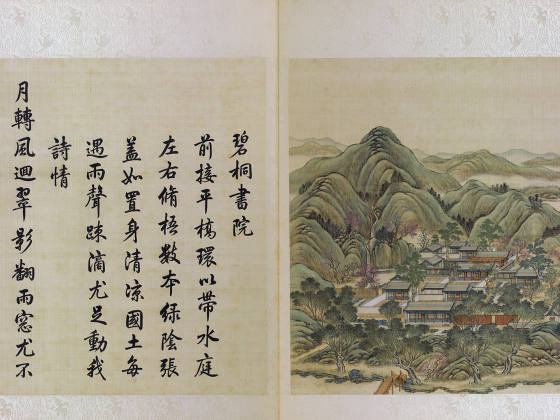 碧桐書院
前接平橋環以帶水庭
左右脩梧數本綠陰張
蓋如置身清涼國土每
遇雨聲疎滴尤足動我
詩情
月轉風迴翠影翻雨窓尤不